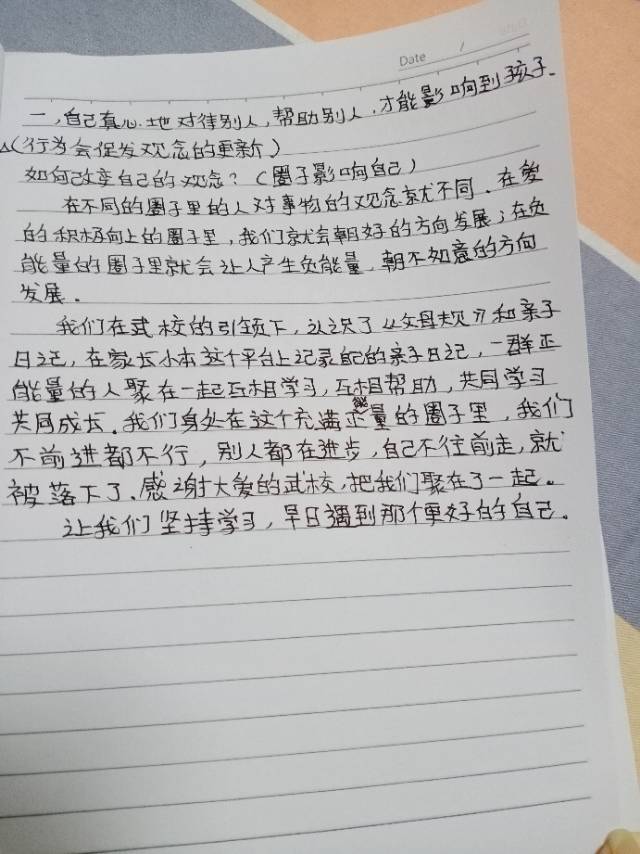 Date /
一,自己真心地对待别人,帮助别人,才能影响到孩子.
△(行为会促发观念的更新)
如何改变自己的观念?(圈子影响自己)
在不同的圈子里的人对事物的观念就不同.在爱
的积极向上的圈子里,我们就会朝好的方向发展;在负
能量的圈子里就会让人产生负能量,朝不如意的方向
发展.
我们在武校的引领下,认识了《父母规》和亲子
日记,在家长小本这个平台上记录自己的亲子日记,一群正
能量的人聚在一起互相学习,互相帮助,共同学习
共同成长.我们身处在这个充满正能量的圈子里,我们
不前进都不行,别人都在进步,自己不往前走,就
被落下了.感谢大爱的武校,把我们聚在了一起。
让我们坚持学习,早日遇到那个更好的自己。